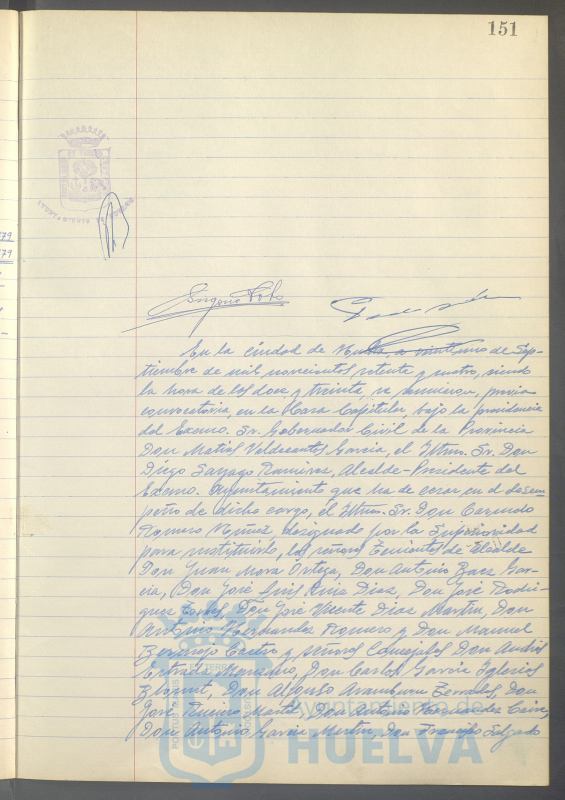 151
En la ciudad de Huelva a veintiuno de Sep-
tiembre de mil novecientos setenta y cuatro, siendo
la hora de las doce y treinta, se reunieron, previa
convocatoria, en la Casa Capitular, bajo la presidencia
del Excmo. Sr. Gobernador Civil de la Provincia
Don Matías Valdecantos García, el Iltmo. Sr. Don
Diego Sayago Ramírez, Alcalde-Presidente del
Excmo. Ayuntamiento que ha de cesar en el desem-
peño de dicho cargo, el Iltmo. Sr. Don Carmelo
Romero Núñez designado por la Superioridad
para sustituirlo, los señores Tenientes de Alcalde
Don Juan Mora Ortega, Don Antonio Baez Gar-
cía, Don José Luis Ruiz Díaz, Don José Rodrí-
guez Don José Vicente Díaz Martín, Don
Antonio Hernández Romero y Don Manuel
Bermejo Castro y señores Concejales Don Andrés
Estrada Moreno, Don Carlos García Iglesias
Don Alfonso Aramburu Terrades, Don
José Don Antonio Fernández
Don Antonio García Martín, Don Francisco Salgado
Ayuntamiento de
HUELVA